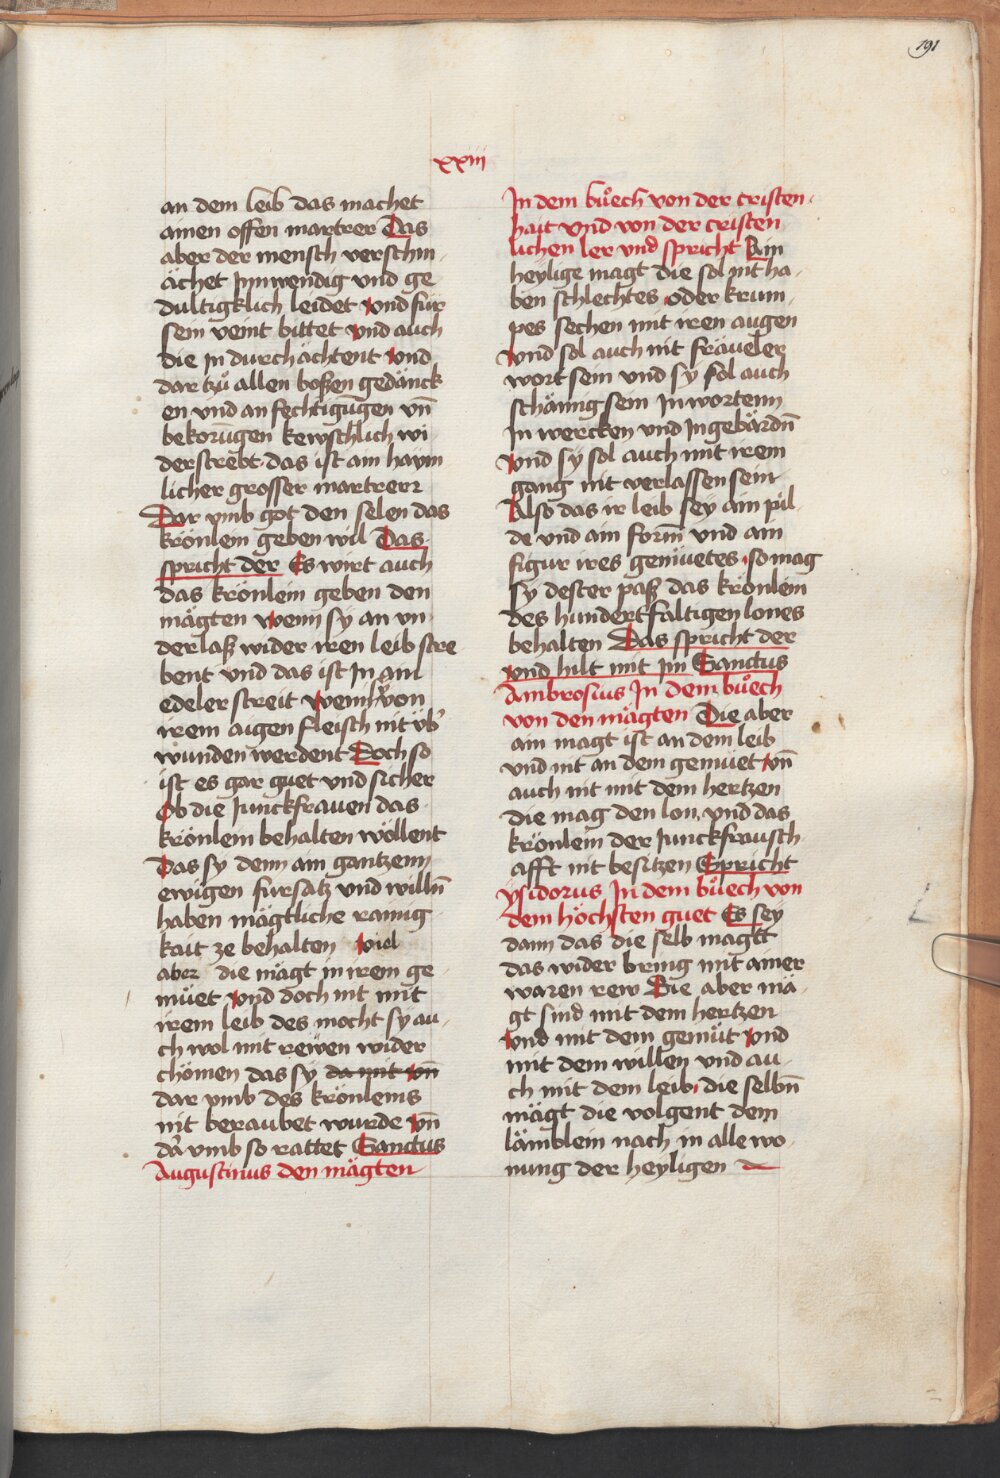 191
xxiii
an dem leib das machet
ainen offen martrer Das
aber der mensch verschm
ächet Jnnwendig vnd ge
dultigklich leidet vnd für
sein veint bittet vnd auch
die in durchächtent vnd
dar tzů allen boßen gedänck
en vnd an fechtigūgen vn̄
bekorūgen kewschlich wi
derstrebt das ist ain haym
licher grosser martrerr
Dar vmb got den selen das
krönlein geben wil Das
spricht der Es wirt auch
das krönlein geben den
mägten wenn sy an vn
derlaß wider iren leib stre
bent vnd das ist Jn ain
edeler streit von
irem aigen fleisch nit vb̕
wunden werdent Doch so
ist es gar guet vnd sicher
Ob die Junckfrauen das
krönlein behalten wöllent
Das sy denn ain gantzenn
ewigen fürsatz vnd willn̄
haben mägtliche rainig
kait ze behalten viel
aber die mägt in irem ge
müet vnd doch nit mit
irem leib des mocht sy au
ch wol mit rewen wider
chömen das sy da mit vn̄
dar vmb des krönleins
nit beraubet wurde vn̄
dar̕ vmb so rattet Sanctus
Augustinus den mägten
Jn dem bůech von der cristen
hait vnd von der cristen
lichen ler vnd spricht Ain
heylige magt die sol nit ha
ben schlechtes oder krum
pes sechen mit iren augen
vnd sol auch nit fräueler
wort sein vnd sy sol auch
schämig sein Jn wortenn
Jn wercken vnd Jn gebärdn̄
vnd sy sol auch mit irem
gang nit verlassen sein
Also das ir leib sey ain pil
de vnd ain form̄ vnd ain
figur ires gemüetes so mag
sy dester paß das krönlein
des hundertfaltigen lones
behalten Das spricht der
vnd hilt mit im Sanctus
Ambrosius Jn dem bůech
von den mägten Die aber
ain magt ist an dem leib
vnd nit an dem gemüet vn̄
auch nit mit dem hertzen
die mag den lon vnd das
krönlein der Junckfrausch
afft nit besitzen Spricht
ysidorus Jn dem bůech von
dem höchsten guet Es sey
dann das die selb magtt
das wider bring mit ainer
waren rew Die aber mä
gt sind mit dem hertzen
vnd mit dem gemüt vnd
mit dem willen vnd au
ch mit dem leib die selbn̄
mägt die volgent dem
lämblein nach in alle wo
nung der heyligen